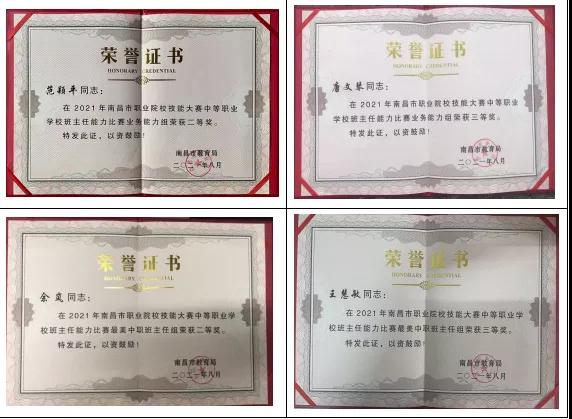 荣誉证书
HONORARY CREDENTIAL
范颖平同志：
在2021年南昌市职业院校技能大赛中等职业
学校班主任能力比赛业务能力组荣获二等奖。
特发此证，以资鼓励！
南昌市教育局
二〇二一年八月
荣誉证书
HONORARY CREDENTIAL
唐文琴同志：
在2021年南昌市职业院校技能大赛中等职业
学校班主任能力比赛业务能力组荣获三等奖。
特发此证，以资鼓励！
南昌市教育局
二〇二一年八月
荣誉证书
HONORARY CREDENTIAL
余岚同志：
在2021年南昌市职业院校技能大赛中等职业学
校班主任能力比赛最美中职班主任组荣获二等奖。
特发此证，以资鼓励！
南昌市教育局
二〇二一年八月
荣誉证书
HONORARY CREDENTIAL
王慧敏同志：
在2021年南昌市职业院校技能大赛中等职业学
校班主任能力比赛最美中职班主任组荣获三等奖。
特发此证，以资鼓励！
南昌市教育局
二〇二一年八月